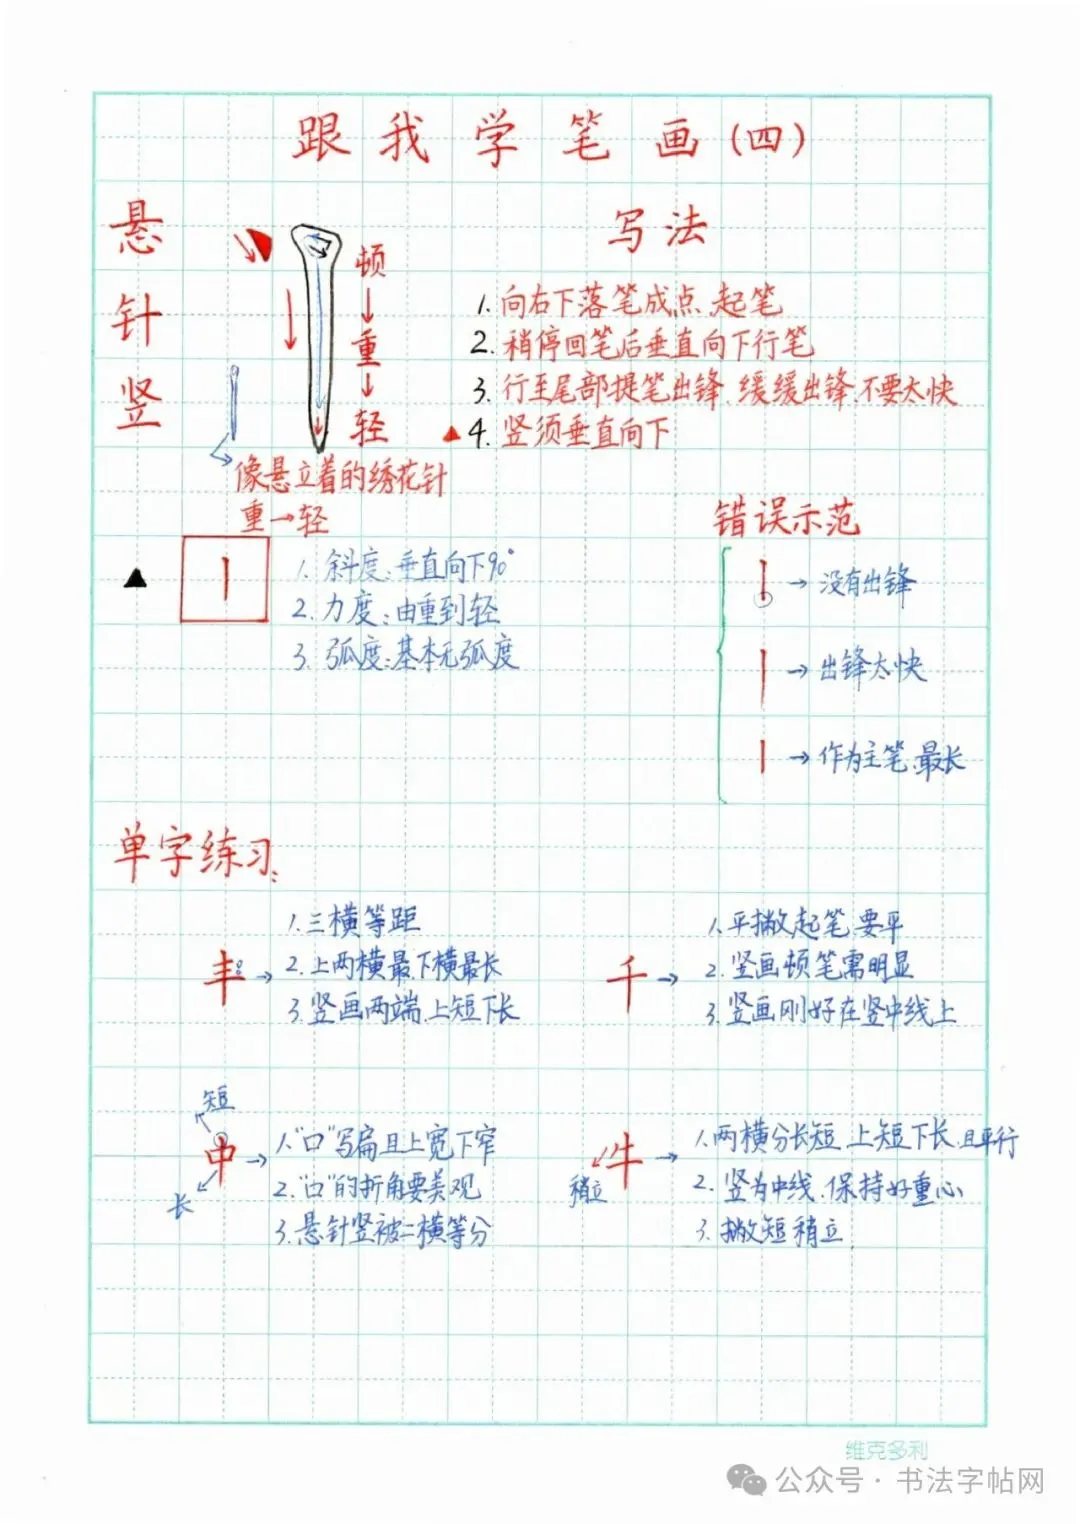 跟我学笔画(四)
悬针竖
顿
重
轻
像悬立着的绣花针
重→轻
写法
1.向右下落笔成点、起笔
2.稍停回笔后垂直向下行笔
3.行至尾部提笔出锋、缓缓出锋、不要太快
4.竖须垂直向下
1.斜度:垂直向下90°
2.力度:由重到轻
3.弧度:基本无弧度
错误示范
→没有出锋
→出锋太快
→作为主笔、最长
单字练习:
丰→
1.三横等距
2.上两横最下横最长
3.竖画两端、上短下长
千→
1.平撇起笔、要平
2.竖画顿笔需明显
3.竖画刚好在竖中线上
短
中→
长
1."口"写扁且上宽下窄
2."口"的折角要美观
3.悬针竖被二横等分
牛→
稍立
1.两横分长短、上短下长、且平行
2.竖为中线、保持好重心
3.撇短稍立
维克多利
公众号·书法字帖网